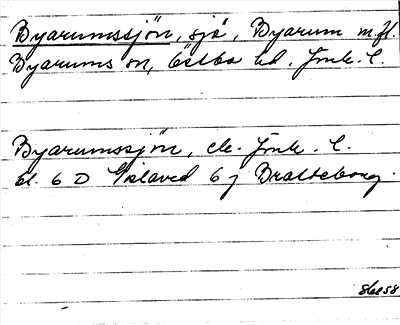 Byarumssjön, sjö, Byarum m.fl.
Byarums sn, Östbo hd, Jmk. l.
Byarumssjön, ek. Jmk. l.
bl. 6 D Gislaved 6 j Bratteborg.